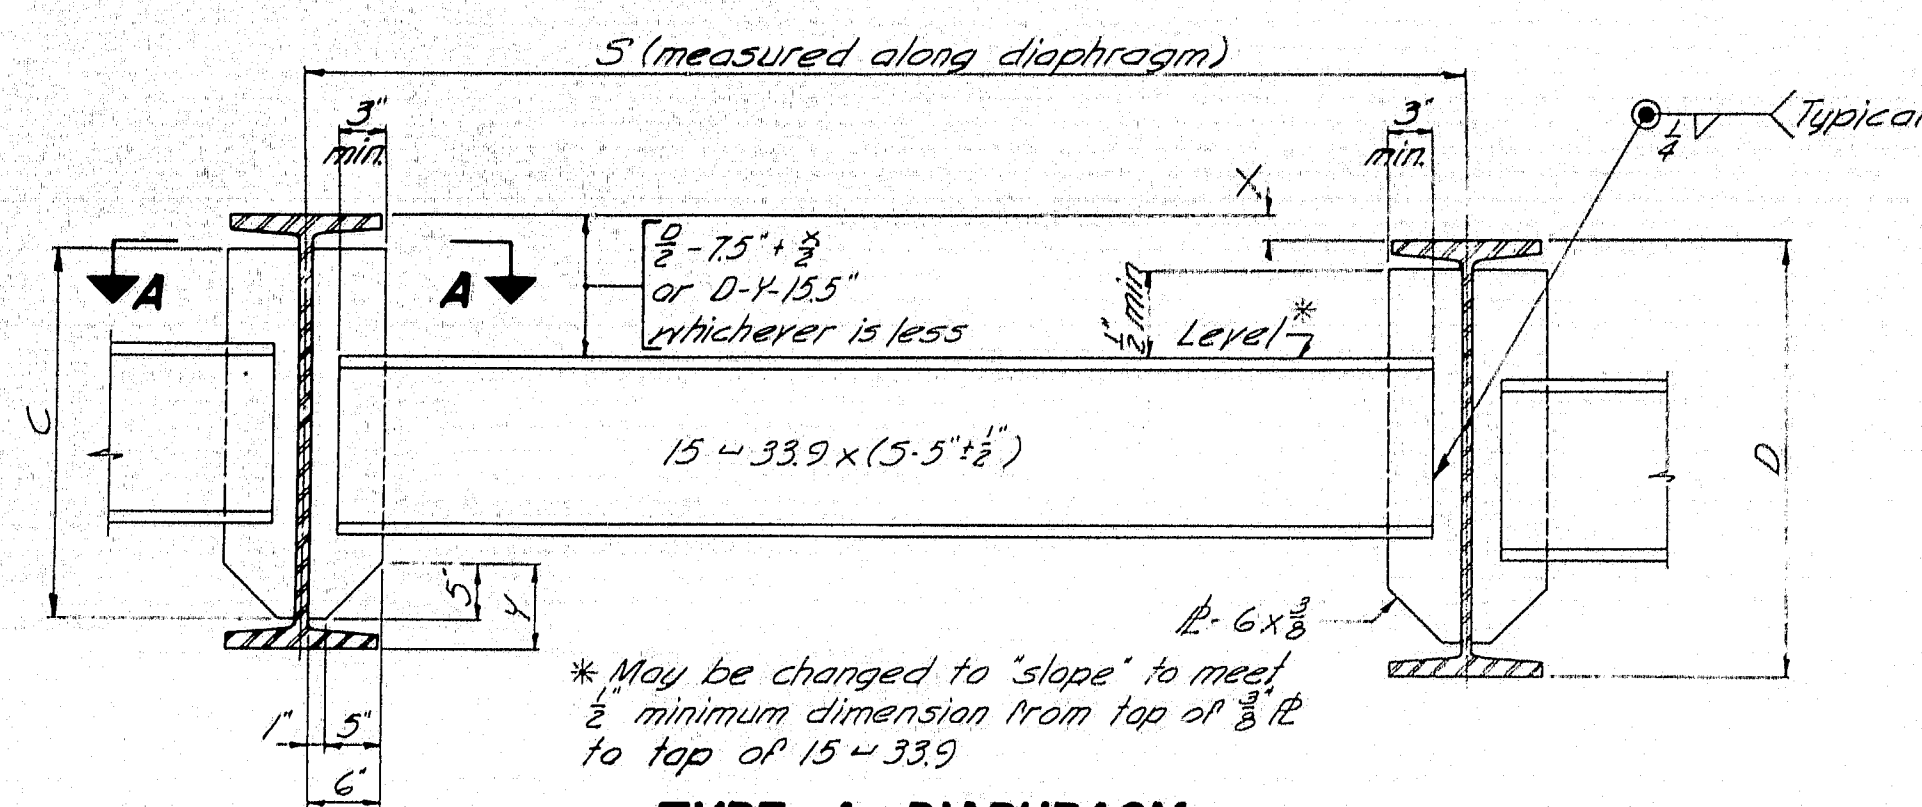 S (measured along diaphragm)
3"
min.
3"
min.
1/4
Typical
X
D/2 - 7.5" + X/2
or D-Y-15.5"
whichever is less
1/2" min
Level *
A
A
C
15 ⊔ 33.9 x (S-5" ± 1/2")
D
5"
Y
℄- 6 x 3/8
* May be changed to "slope" to meet
1/2" minimum dimension from top of 3/8" ℄
to top of 15 ⊔ 33.9
1"
5"
6"
TYPE A DIAPHRAGM